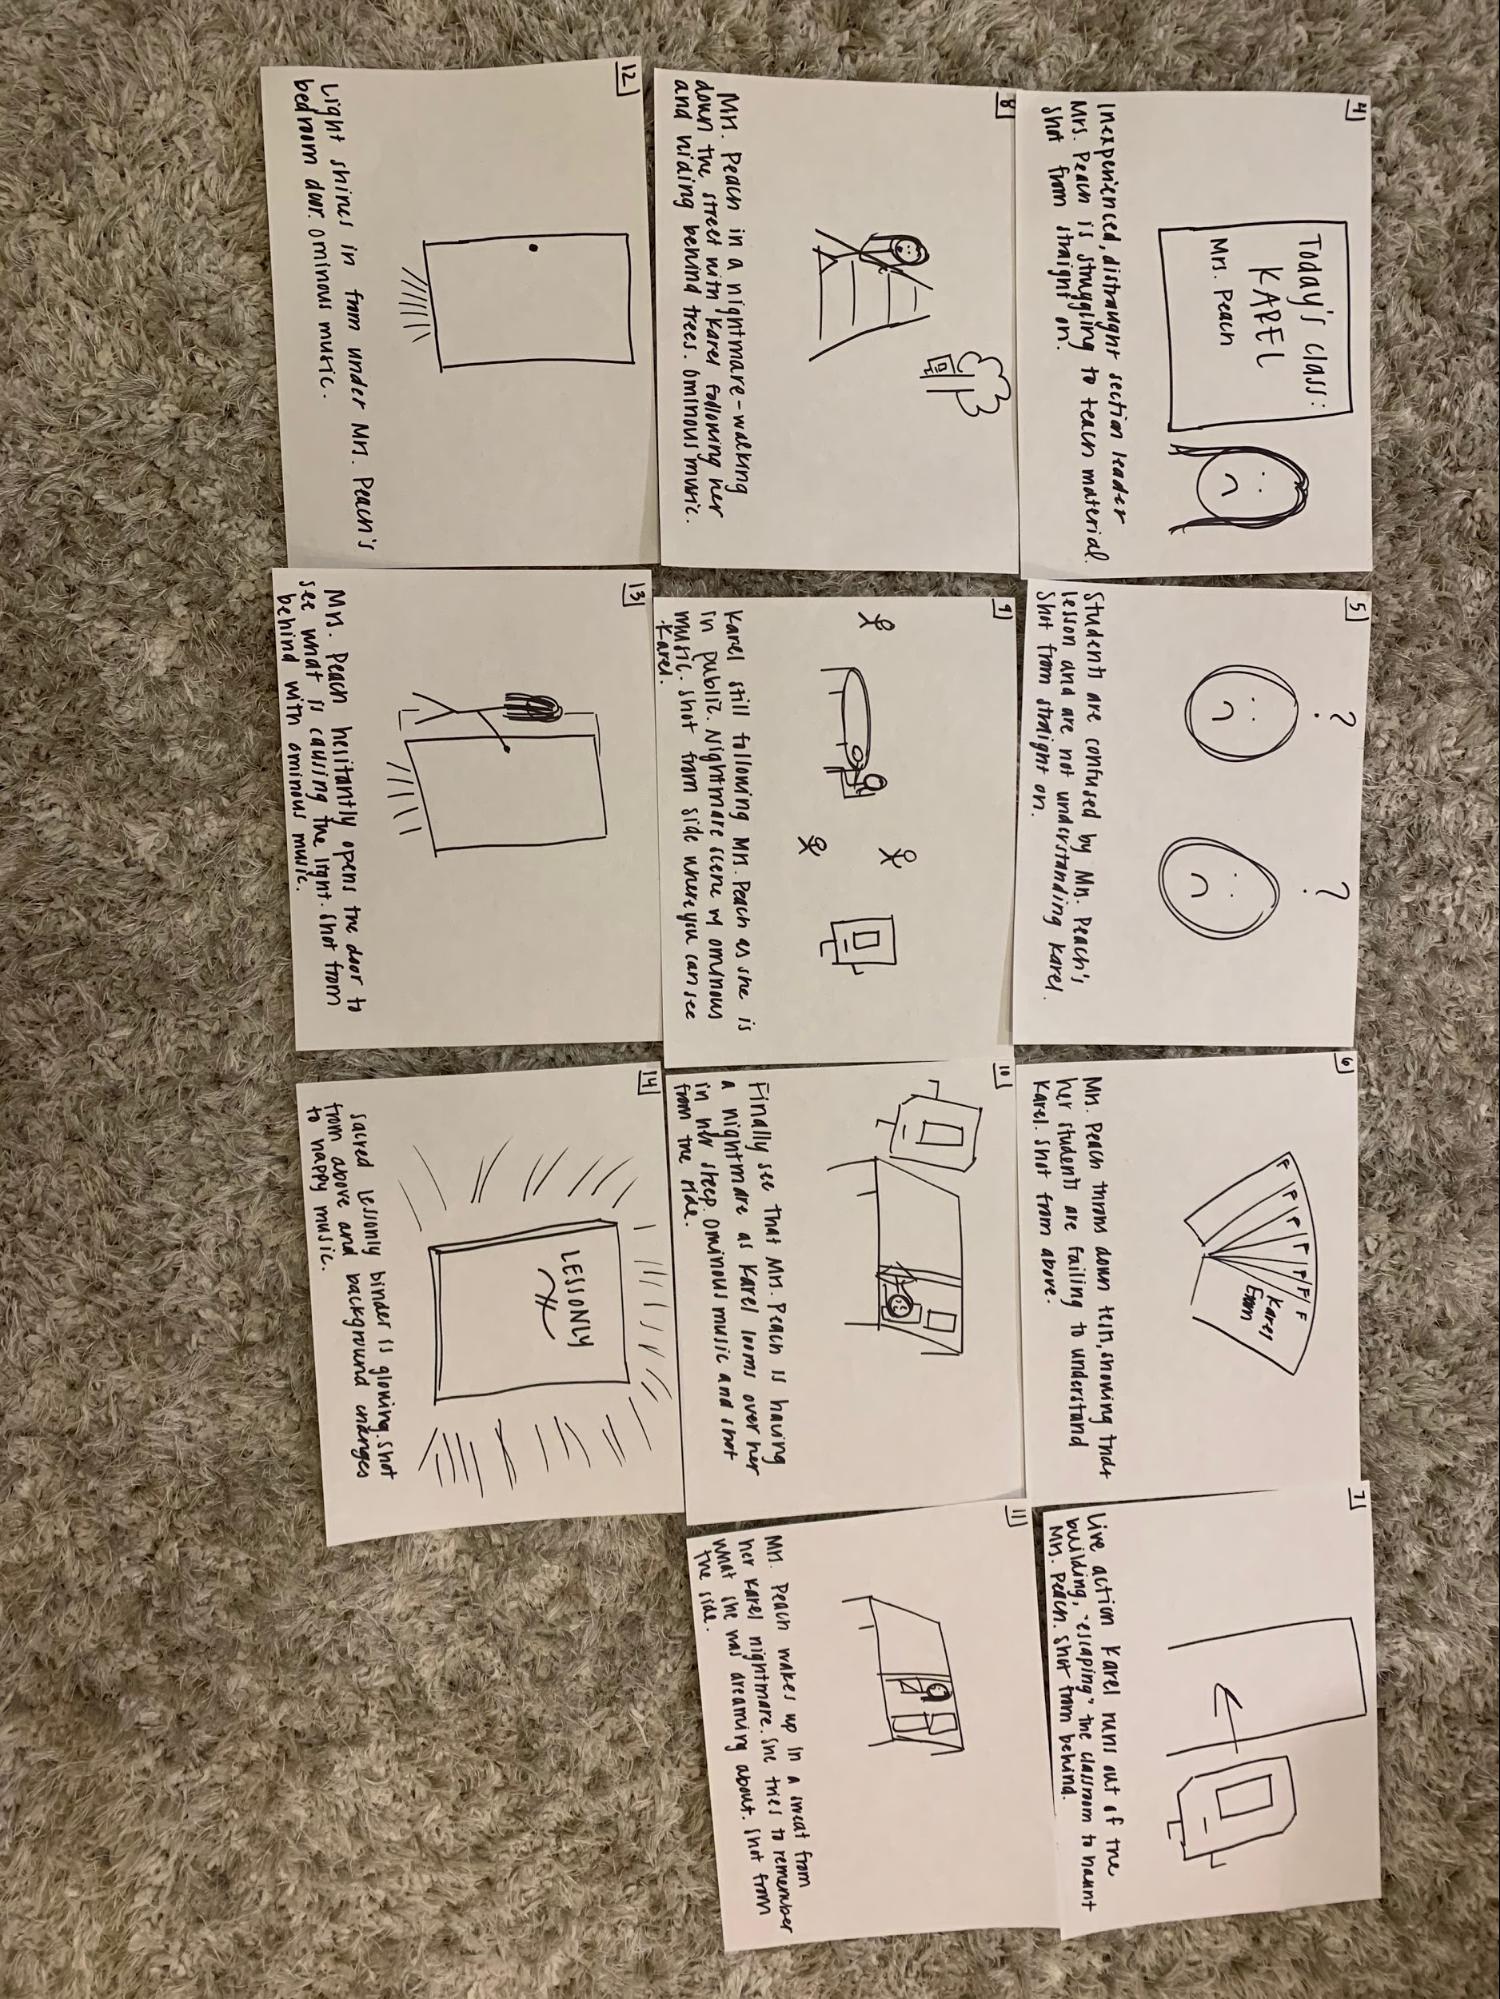 4
Today's class:
KAREL
Mrs. Peach
Inexperienced, distraught section leader
Mrs. Peach is struggling to teach material.
Shot from straight on.
5
? ?
Students are confused by Mrs. Peach's
lesson and are not understanding Karel.
Shot from straight on.
6
F F F F F F
Karel
Exam
Mrs. Peach throws down tests, showing that
her students are failing to understand
Karel. Shot from above.
7
Live action Karel runs out of the
building, "escaping" the classroom to haunt
Mrs. Peach. Shot from behind.
8
Mrs. Peach in a nightmare-walking
down the street with Karel following her
and hiding behind trees. Ominous music.
9
Karel still following Mrs. Peach as she is
in public. Nightmare scene w/ ominous
music. Shot from side where you can see
Karel.
10
Finally see that Mrs. Peach is having
a nightmare as Karel looms over her
in her sleep. Ominous music and shot
from the side.
11
Mrs. Peach wakes up in a sweat from
her Karel nightmare. She tries to remember
what she was dreaming about. Shot from
the side.
12
Light shines in from under Mrs. Peach's
bedroom door. Ominous music.
13
Mrs. Peach hesitantly opens the door to
see what is causing the light. Shot from
behind with ominous music.
14
LESSONLY
Sacred lessonly binder is glowing. Shot
from above and background changes
to happy music.